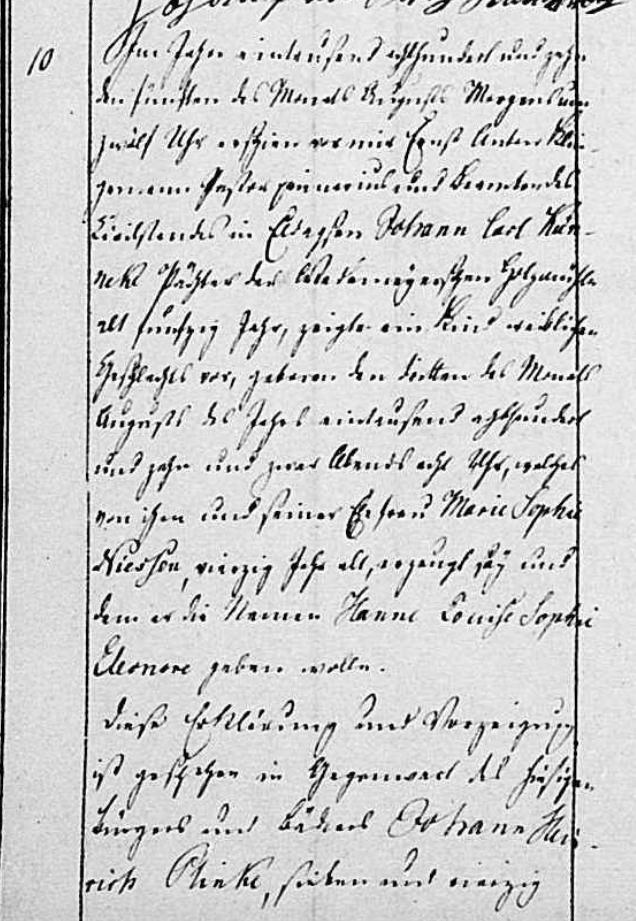 10
Im Jahre eintausend achthundert und zehn
den funften des Monats Augusts Morgens um
zwölf Uhr erschien vor mir Ernst Anton Klin-
gemann Pastor primarius und Beamter des
Civilstandes in Eldagsen Johann Carl Kün-
neke Pächter der Holzmühle
alt funfzig Jahr, zeigte ein Kind weiblichen
Geschlechts vor, geboren den dritten des Monats
Augusts des Jahrs eintausend achthundert
und zehn und zwar Abends acht Uhr, welches
von ihm und seiner Ehefrau Marie Sophie
vierzig Jahr alt, erzeugt sey und
dem er die Namen Hanne Louise Sophie
Eleonore geben wolle.
Diese Erklärung und Vorzeigung
ist geschehen in Gegenwart des hiesigen
Bürgers und Bäckers Johann Hein-
rich Plinke, sieben und vierzig